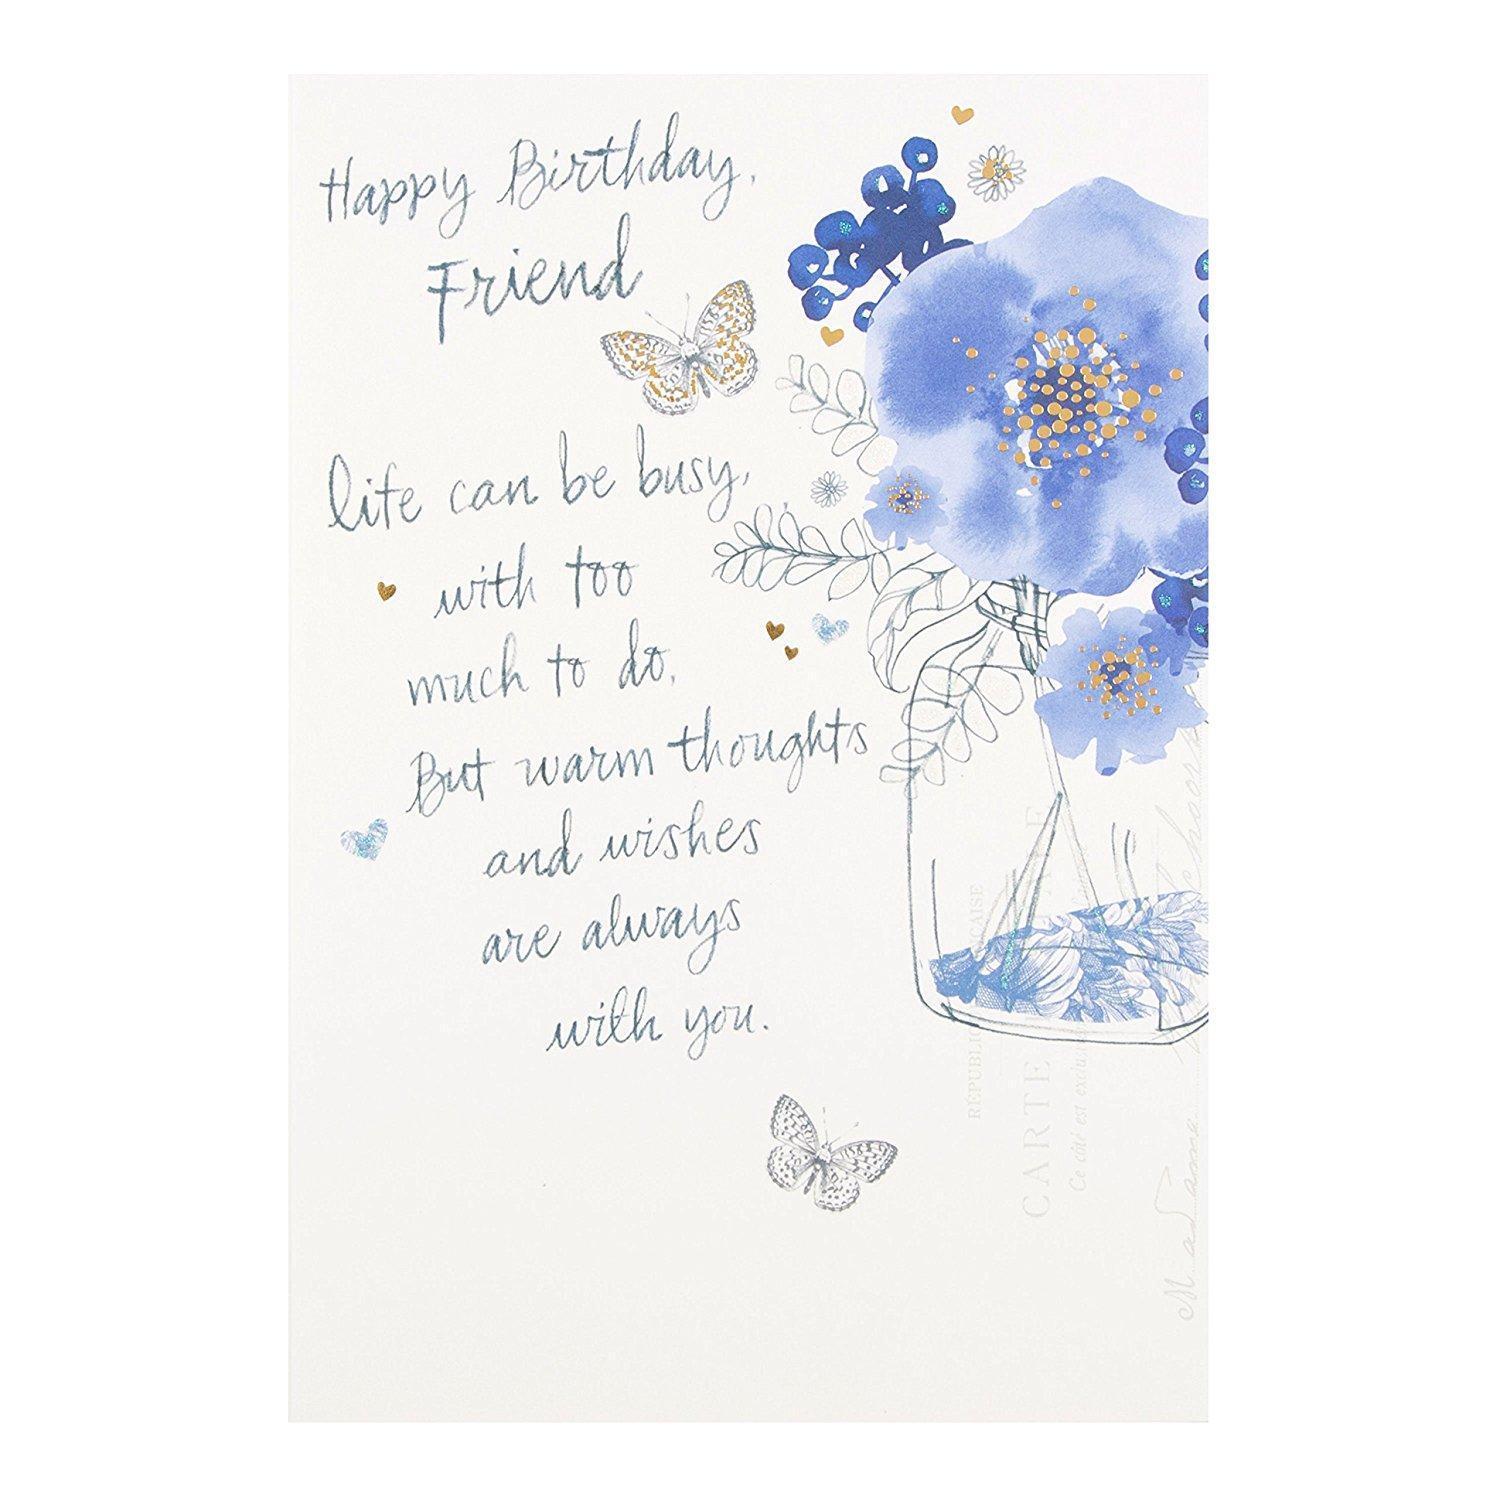 Happy Birthday,
Friend
life can be busy,
with too
much to do,
But warm thoughts
and wishes
are always
with you.
CARTE
Ce côté est exclus
Madame